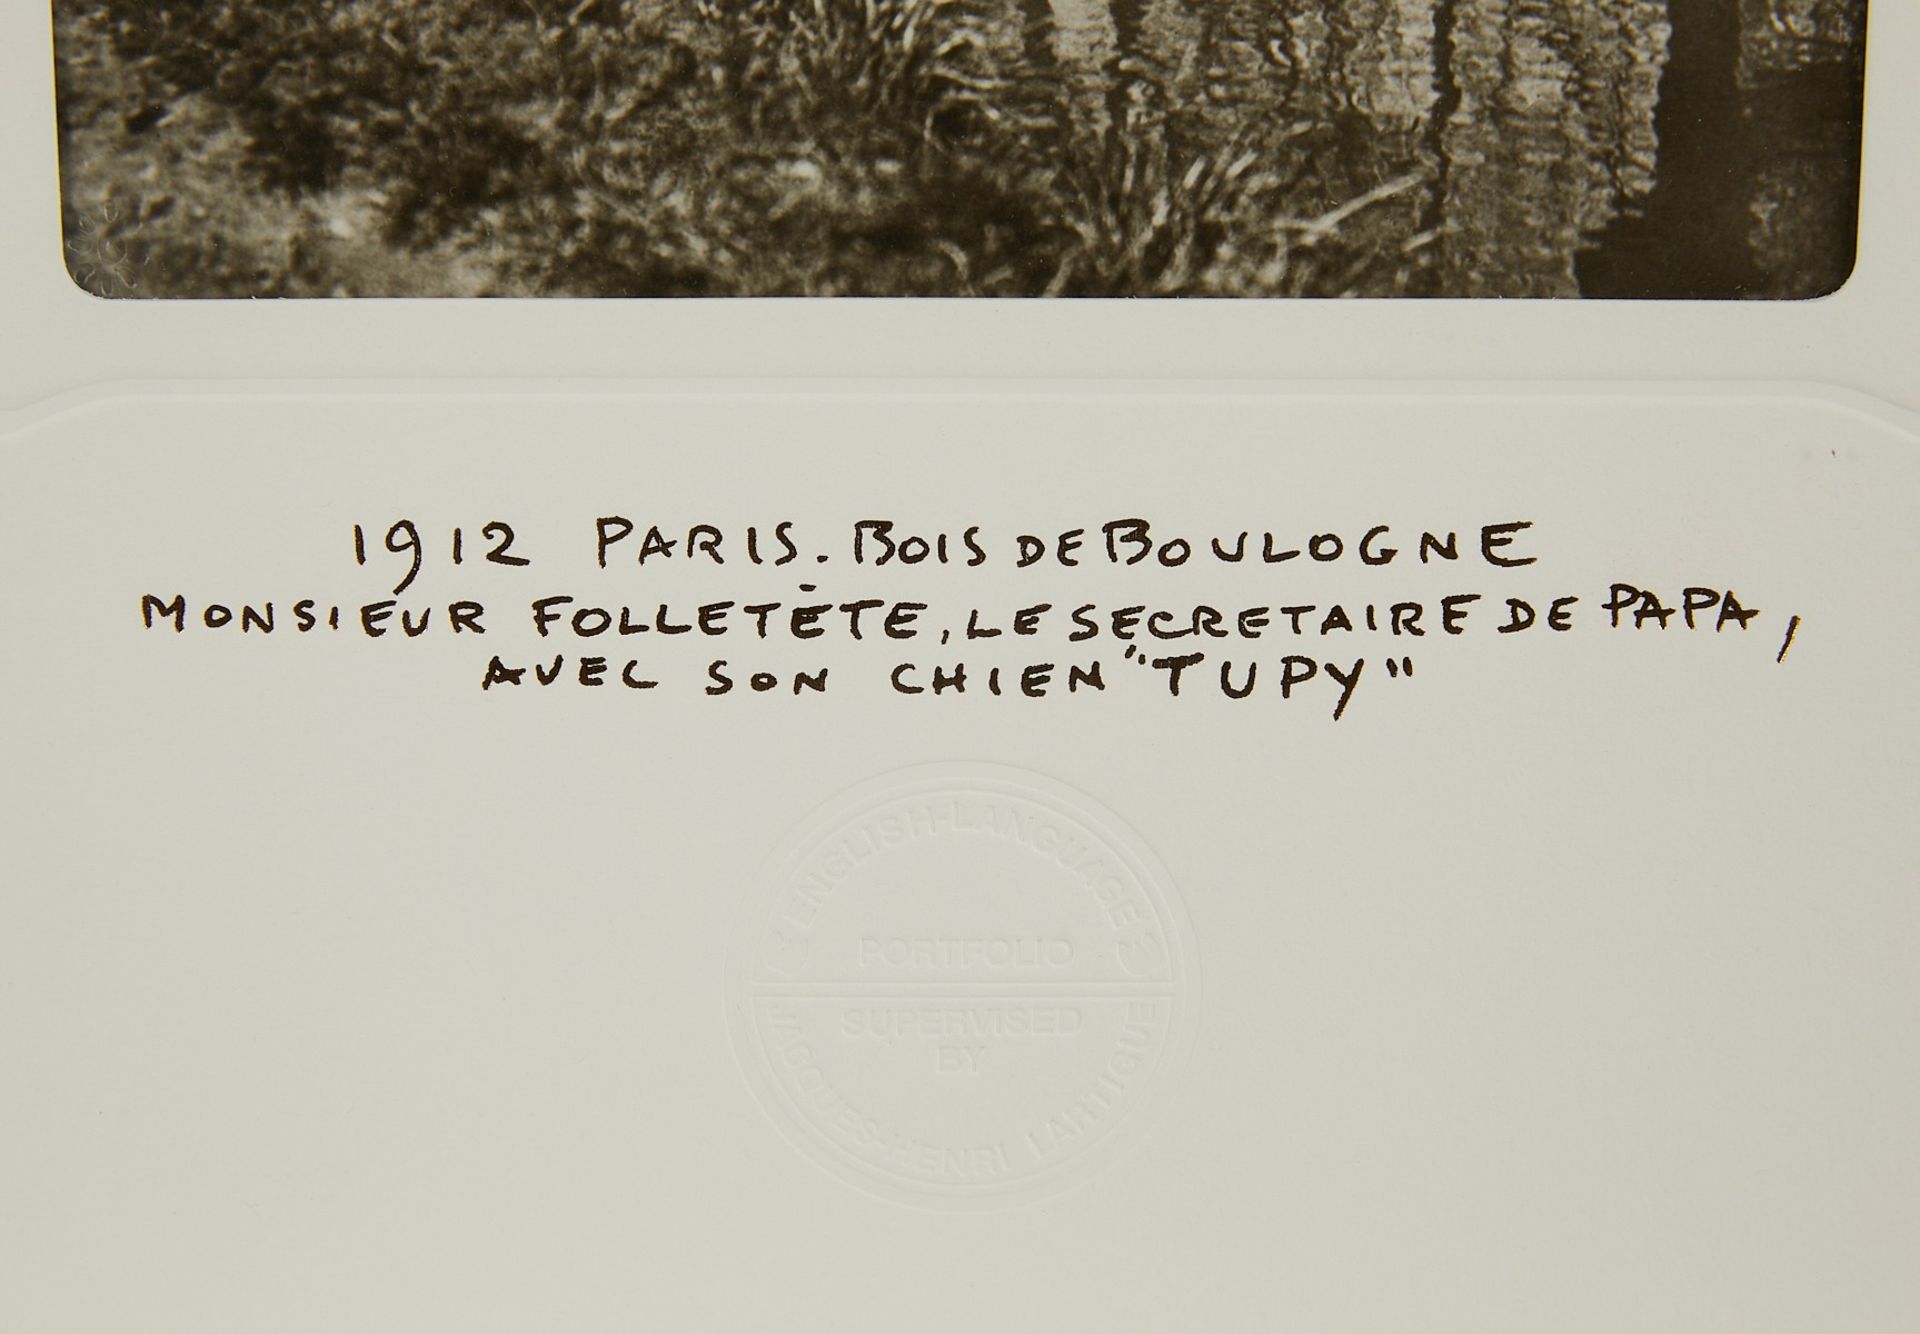 1912 PARIS. BOIS DE BOULOGNE
MONSIEUR FOLLETÈTE, LE SECRETAIRE DE PAPA,
AVEC SON CHIEN "TUPY"
ENGLISH-LANGUAGE
PORTFOLIO
SUPERVISED
BY
JACQUES-HENRI LARTIGUE